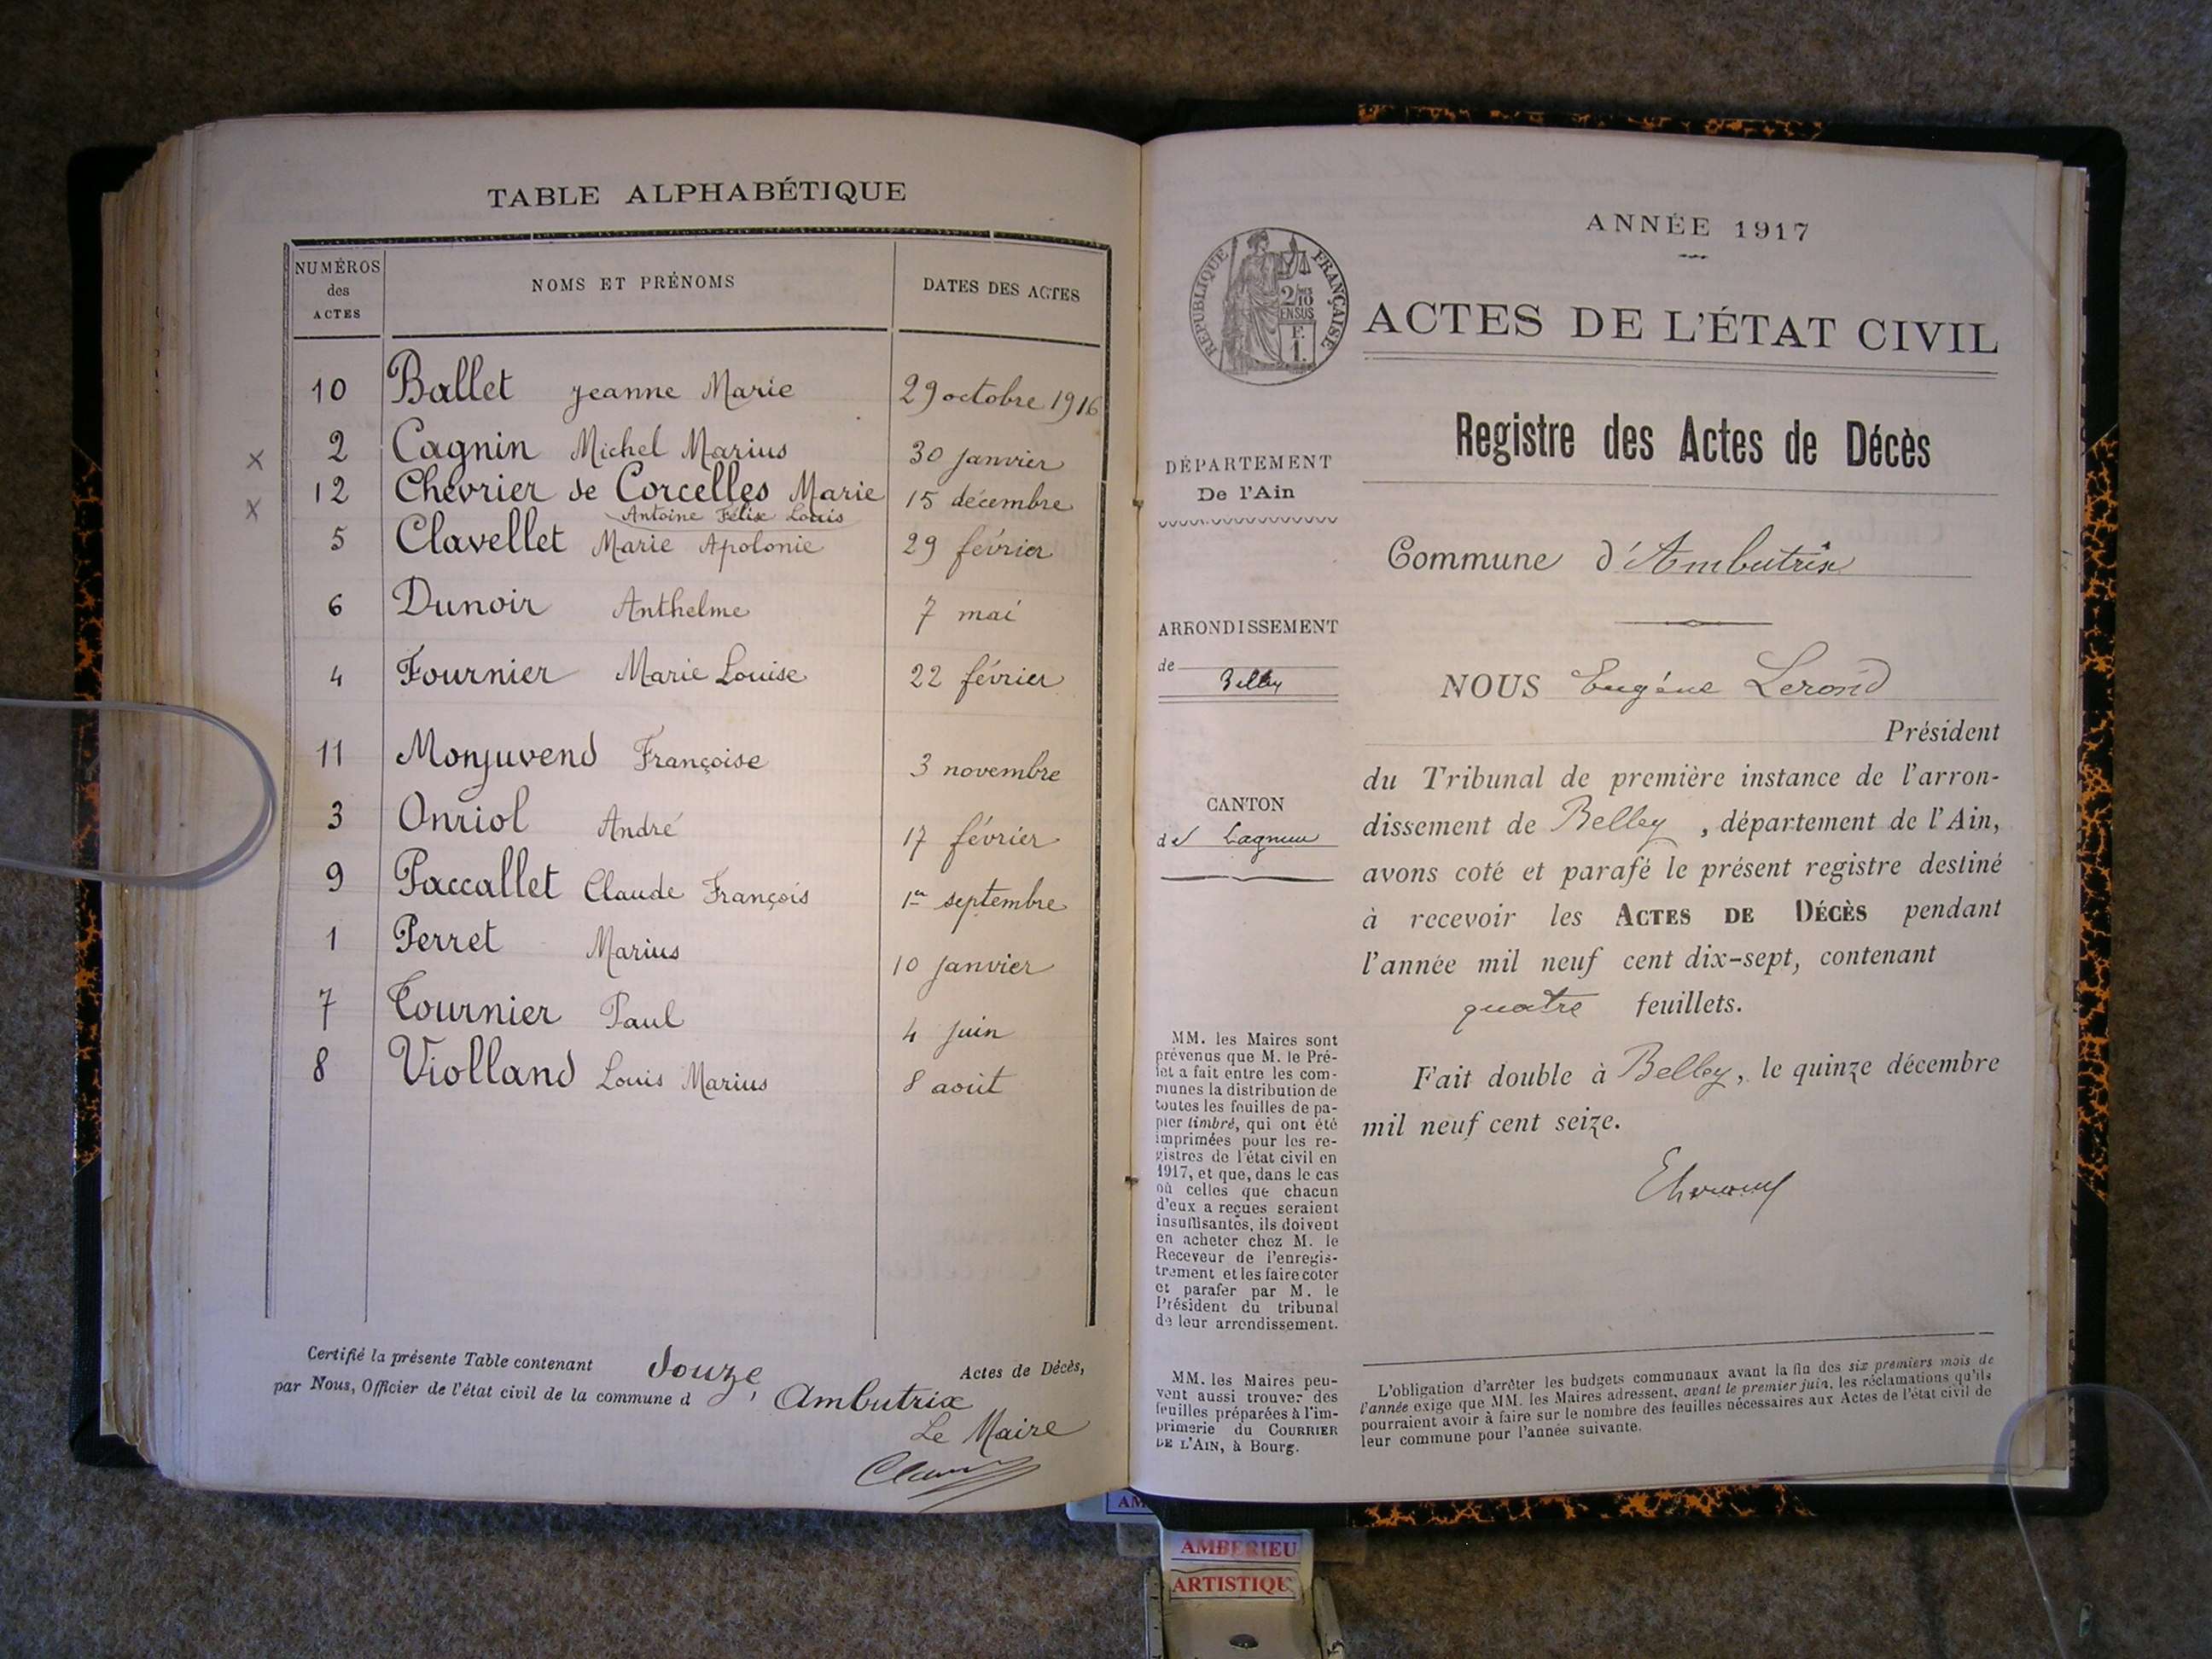 TABLE ALPHABÉTIQUE
NUMÉROS des ACTES NOMS ET PRÉNOMS DATES DES ACTES
10 Ballet Jeanne Marie 29 octobre 1916
x 2 Cagnin Michel Marius 30 janvier
x 12 Chevrier de Corcelles Marie 15 décembre
Antoine Félix Louis
5 Clavellet Marie Apolonie 29 février
6 Dunoir Anthelme 7 mai
4 Fournier Marie Louise 22 février
11 Monjuvend Françoise 3 novembre
3 Onriol André 17 février
9 Paccallet Claude François 1er septembre
1 Perret Marius 10 janvier
7 Tournier Paul 4 juin
8 Violland Louis Marius 8 août
Certifié la présente Table contenant douze Actes de Décès,
par Nous, Officier de l'état civil de la commune d' Ambutrix
Le Maire
ANNÉE 1917
RÉPUBLIQUE FRANÇAISE
2/10
EN SUS
F.
1.
ACTES DE L'ÉTAT CIVIL
Registre des Actes de Décès
DÉPARTEMENT
De l'Ain
ARRONDISSEMENT
de Belley
CANTON
de Lagnieu
MM. les Maires sont
prévenus que M. le Pré-
fet a fait entre les com-
munes la distribution de
toutes les feuilles de pa-
pier timbré, qui ont été
imprimées pour les re-
gistres de l'état civil en
1917, et que, dans le cas
où celles que chacun
d'eux a reçues seraient
insuffisantes, ils doivent
en acheter chez M. le
Receveur de l'enregis-
trement et les faire coter
et parafer par M. le
Président du tribunal
de leur arrondissement.
MM. les Maires peu-
vent aussi trouver des
feuilles préparées à l'im-
primerie du COURRIER
DE L'AIN, à Bourg.
Commune d'Ambutrix
NOUS Eugène Lerond
Président
du Tribunal de première instance de l'arron-
dissement de Belley, département de l'Ain,
avons coté et parafé le présent registre destiné
à recevoir les ACTES DE DÉCÈS pendant
l'année mil neuf cent dix-sept, contenant
quatre feuillets.
Fait double à Belley, le quinze décembre
mil neuf cent seize.
L'obligation d'arrêter les budgets communaux avant la fin des six premiers mois de
l'année exige que MM. les Maires adressent, avant le premier juin, les réclamations qu'ils
pourraient avoir à faire sur le nombre des feuilles nécessaires aux Actes de l'état civil de
leur commune pour l'année suivante.
AM
AMBERIEU
ARTISTIQU